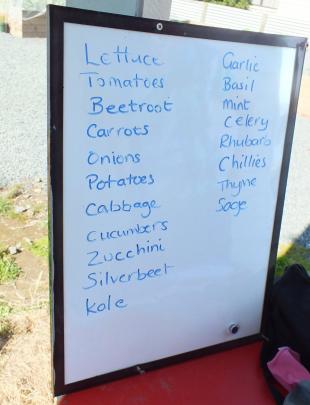 Lettuce
Tomatoes
Beetroot
Carrots
Onions
Potatoes
Cabbage
Cucumbers
Zucchini
Silverbeet
Kole
Garlic
Basil
mint
celery
Rhubarb
Chillies
Thyme
Sage